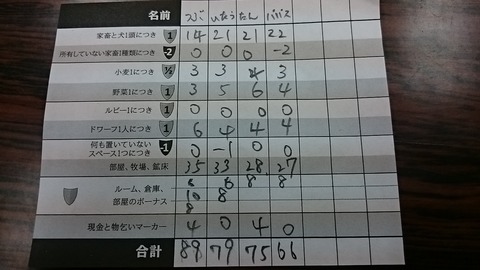 名前 たん パパス
家畜と犬1頭につき 1 14 21 21 22
所有していない家畜1種類につき -2 0 0 0 -2
小麦1につき ½ 3 3 4 3
野菜1につき 1 3 5 6 4
ルビー1につき 1 0 0 0 0
ドワーフ1人につき 1 6 4 4 4
何も置いていない
スペース1つにつき -1 0 -1 0 0
部屋、牧場、鉱床 35 33 28 27
6 6 8 8
ルーム、倉庫、 10 8
部屋のボーナス 8
現金と物乞いマーカー 4 0 4 0
合計 89 79 75 66